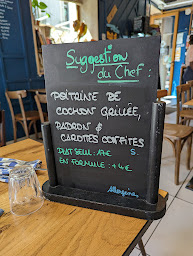 Suggestion
du Chef :
POITRINE DE
COCHON GRILLÉE,
PADRON &
CAROTTES CONFITES
PLAT SEUL : 17€ S.
EN FORMULE : + 4€
Allergène